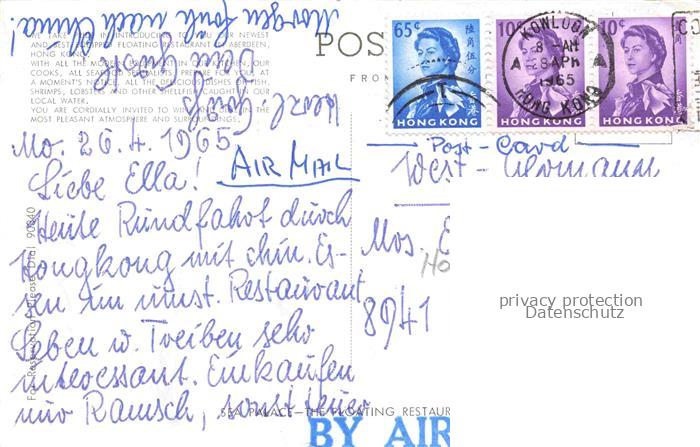 Morgen früh nach China!
WE TAKE
IN INTRODUCING
YOUR NEWEST
AND BEST
FLOATING RESTAURANT
ABERDEEN,
HONG KONG.
WITH ALL THE MODERN
KITCHEN, OUR
COOKS, ALL
SPECIALISTS, PREPARE FOR YOU AT
A MOMENT'S NOTICE, ALL THE
DISHES OF FISH,
SHRIMPS, LOBSTERS AND OTHER SHELLFISH CAUGHT IN OUR
LOCAL WATER.
YOU ARE CORDIALLY INVITED TO
THE
MOST PLEASANT ATMOSPHERE AND SURROUNDINGS.
Herzl.
POS
FROM
65¢
陸角伍分
香港
HONG KONG
10¢
HONG KONG
10¢
HONG KONG
KOWLOON
8 - AM
A 28 AP A
1965
HONG KONG
Mo. 26.4.1965
AIR MAIL
Liebe Ella!
Heute Rundfahrt durch
Hongkong mit chin. Es-
sen im
Restaurant
Leben u. Treiben sehr
interessant. Einkaufen
nur Ramsch, sonst teuer
Post-Card
West-Germann
Mos. E
Ho
8941
privacy protection
Datenschutz
For Reservation Please Dial 90840
SEA PALACE—THE FLOATING RESTAUR
BY AIR